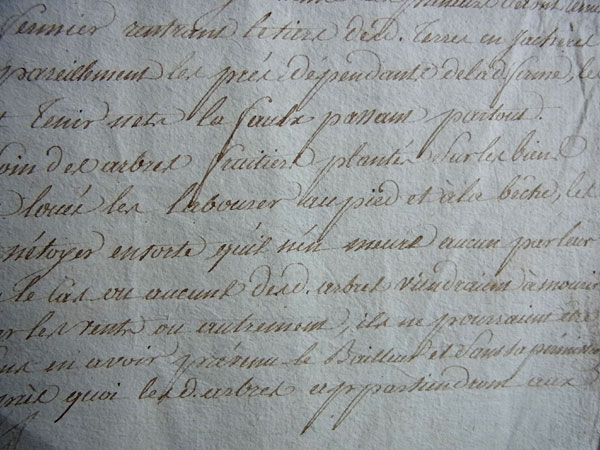 fermier rentrant le tiers desd. Terres en Jacheres
pareillement les prés dépendants de lad. ferme, les
Tenir nets la faulx passant partout.
soin des arbres fruitiers plantés sur les biens
loués les labourer au pied et a la bêche, les
nétoyer ensorte qu'il n'en meure aucun par leur
le Cas ou aucuns desd. arbres viendraient à mourir
par les vents ou autrement, ils ne pourraient être
en avoir prévenu le Bailleur et Sans sa permission
après quoi lesd. arbres appartiendront aux